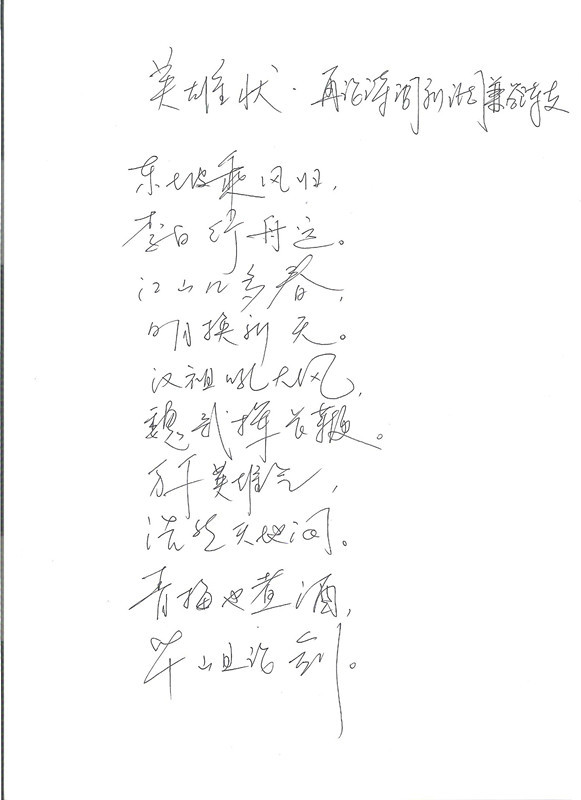 英雄状·再论诗词新论兼答李支
东坡乘风归，
李白纤舟运。
江山几多春，
明月换新天。
汉祖吼大风，
魏武挥长鞭。
万千英雄气，
浩然天地间。
青梅也煮酒，
华山且论剑。